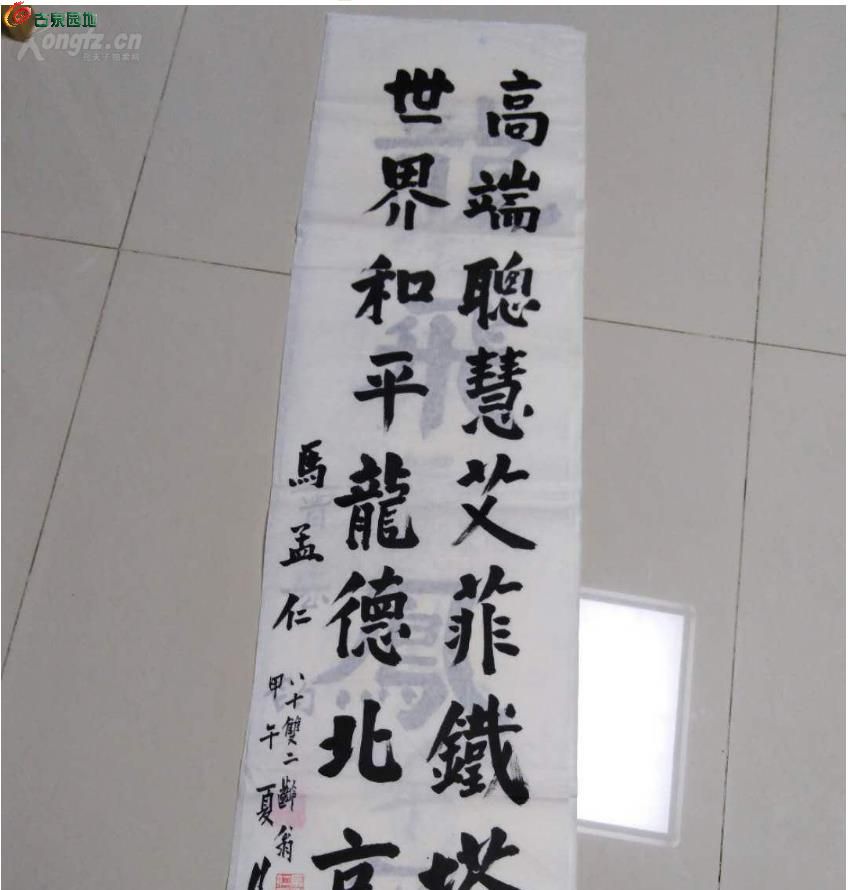 古泉园地
Kongfz.cn
孔夫子拍卖网
高端聰慧艾菲鐵塔
世界和平龍德北京
馬孟仁
八十雙二齡翁
甲午夏